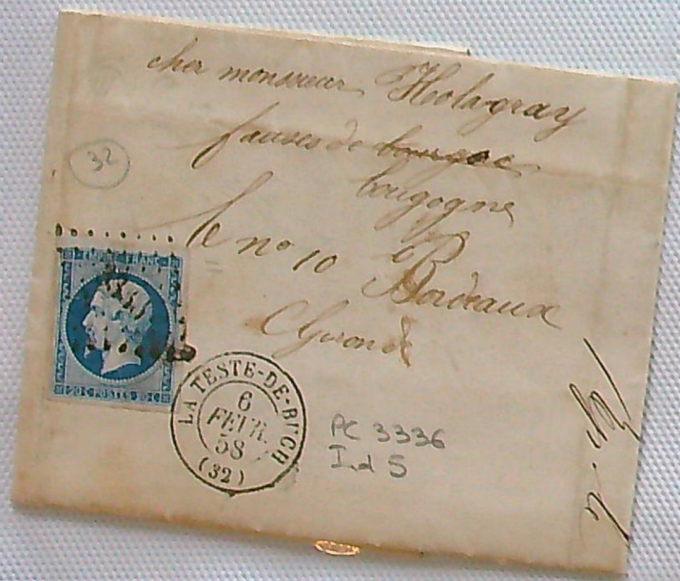 cher monsieur Holagray
fausés de bourgoe
bougogne
no 10 à Bordeaux
Gironde
32
EMPIRE FRANC
20 C POSTES 20 C
LA TESTE-DE-BUCH
6
FEVR.
58
(32)
PC 3336
Ind 5